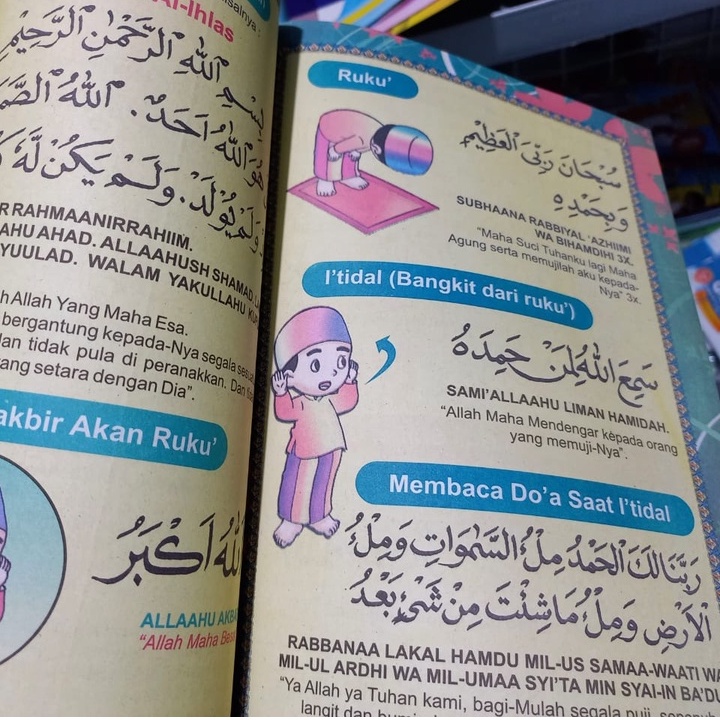 Al-Ihlas
اللهِ الرَّحْمٰنِ الرَّحِيْمِ
هُوَ اللهُ اَحَدٌ. اَللهُ
يُوْلَدْ. وَلَمْ يَكُنْ لَهُ
RRAHMAANIRRAHIIM.
AHU AHAD. ALLAAHUSH SHAMAD.
YUULAD. WALAM YAKULLAHU
Allah Yang Maha Esa.
bergantung kepada-Nya segala
dan tidak pula di peranakkan. Dan
yang setara dengan Dia”.
Takbir Akan Ruku’
اَكْبَرُ
ALLAAHU
“Allah Maha
Ruku’
سُبْحَانَ رَبِّيَ الْعَظِيْمِ
وَبِحَمْدِهِ
SUBHAANA RABBIYAL ‘AZHIIMI
WA BIHAMDIHI 3X.
“Maha Suci Tuhanku lagi Maha
Agung serta memujilah aku kepada-
Nya” 3x.
I’tidal (Bangkit dari ruku’)
سَمِعَ اللهُ لِمَنْ حَمِدَهُ
SAMI’ALLAAHU LIMAN HAMIDAH.
“Allah Maha Mendengar kepada orang
yang memuji-Nya”.
Membaca Do’a Saat I’tidal
رَبَّنَا لَكَ الْحَمْدُ مِلْءُ السَّمٰوَاتِ وَمِلْءُ
الْاَرْضِ وَمِلْءُ مَا شِئْتَ مِنْ شَيْءٍ بَعْدُ
RABBANAA LAKAL HAMDU MIL-US SAMAA-WAATI WA
MIL-UL ARDHI WA MIL-UMAA SYI’TA MIN SYAI-IN BA’DU
“Ya Allah ya Tuhan kami, bagi-Mulah segala puji,
langit dan